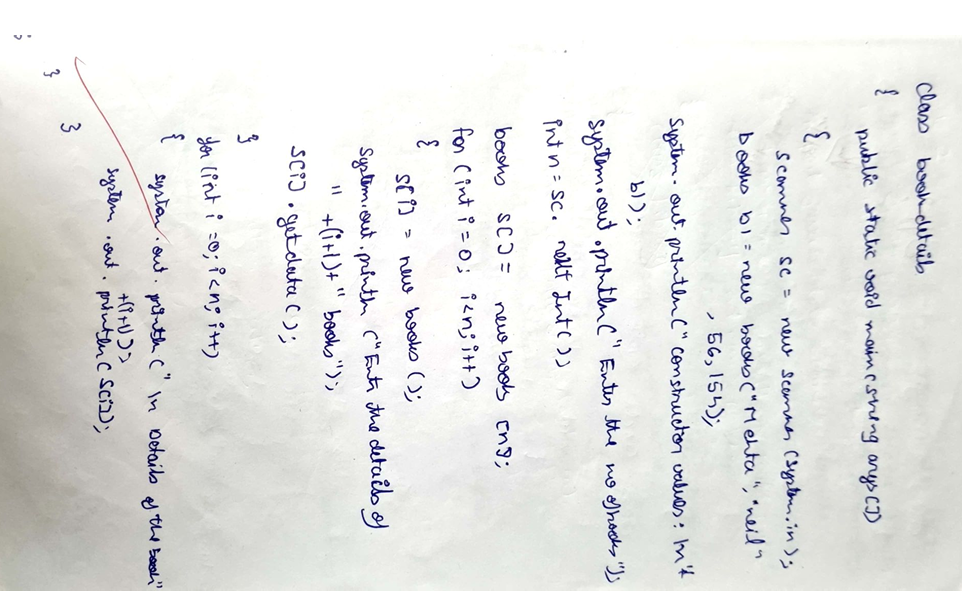 class bookdetails
{
public static void main(string args[])
{
scanner sc = new scanner (system.in);
books b1 = new books("Mehta", "neil"
, 56, 154);
system.out.println("constructor values: \n"+
b1);
system.out.println("Enter the no of books");
int n = sc. next Int());
books s[] = new books [n];
for (int i = 0; i<n; i++)
{
s[i] = new books();
system.out.println ("Enter the details of
" +(i+1)+ " books");
s[i].getdata();
}
for (int i =0; i<n; i++)
{
system.out.println(" \n Details of the book"
+(i+1));
system.out.println(s[i]);
}
}